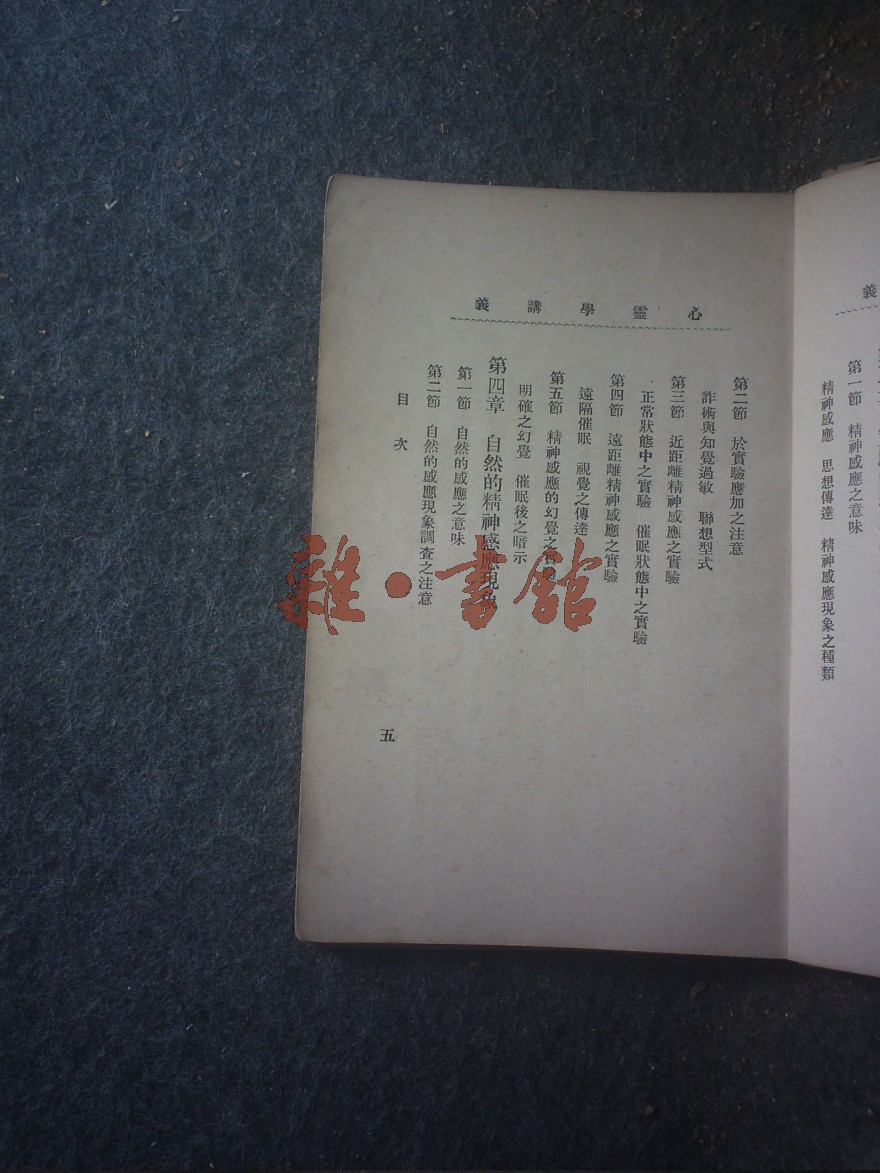 義
第一節　精神感應之意味
精神感應　思想傳達　精神感應現象之種類
心靈學講義
第二節　於實驗應加之注意
詐術與知覺過敏　聯想型式
第三節　近距離精神感應之實驗
正常狀態中之實驗　催眠狀態中之實驗
第四節　遠距離精神感應之實驗
遠隔催眠　視覺之傳達
第五節　精神感應的幻覺之實
明確之幻覺　催眠後之暗示
第四章　自然的精神感應現
第一節　自然的感應之意味
第二節　自然的感應現象調查之注意
目次
五
雜·書館